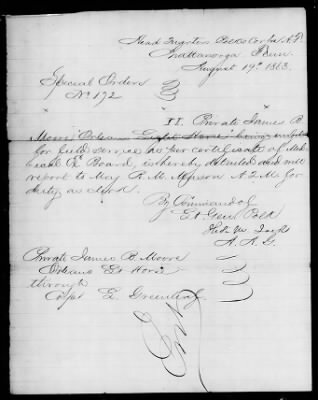 Head Quarters Polks Corps A.T.
Chattanooga Tenn
August 19th 1863.
Special Orders
No 172
II. Private James B
Moore Orleans Light Horse being unfit
for field service as per certificate of Med-
ical Ex Board, is hereby detailed and will
report to Maj R. M. Mason A Q M for
duty as such.
By Command of
Lt Genl Polk
A. A. G.
Private James B. Moore
Orleans Lt Horse
through
Capt L. Greenleaf